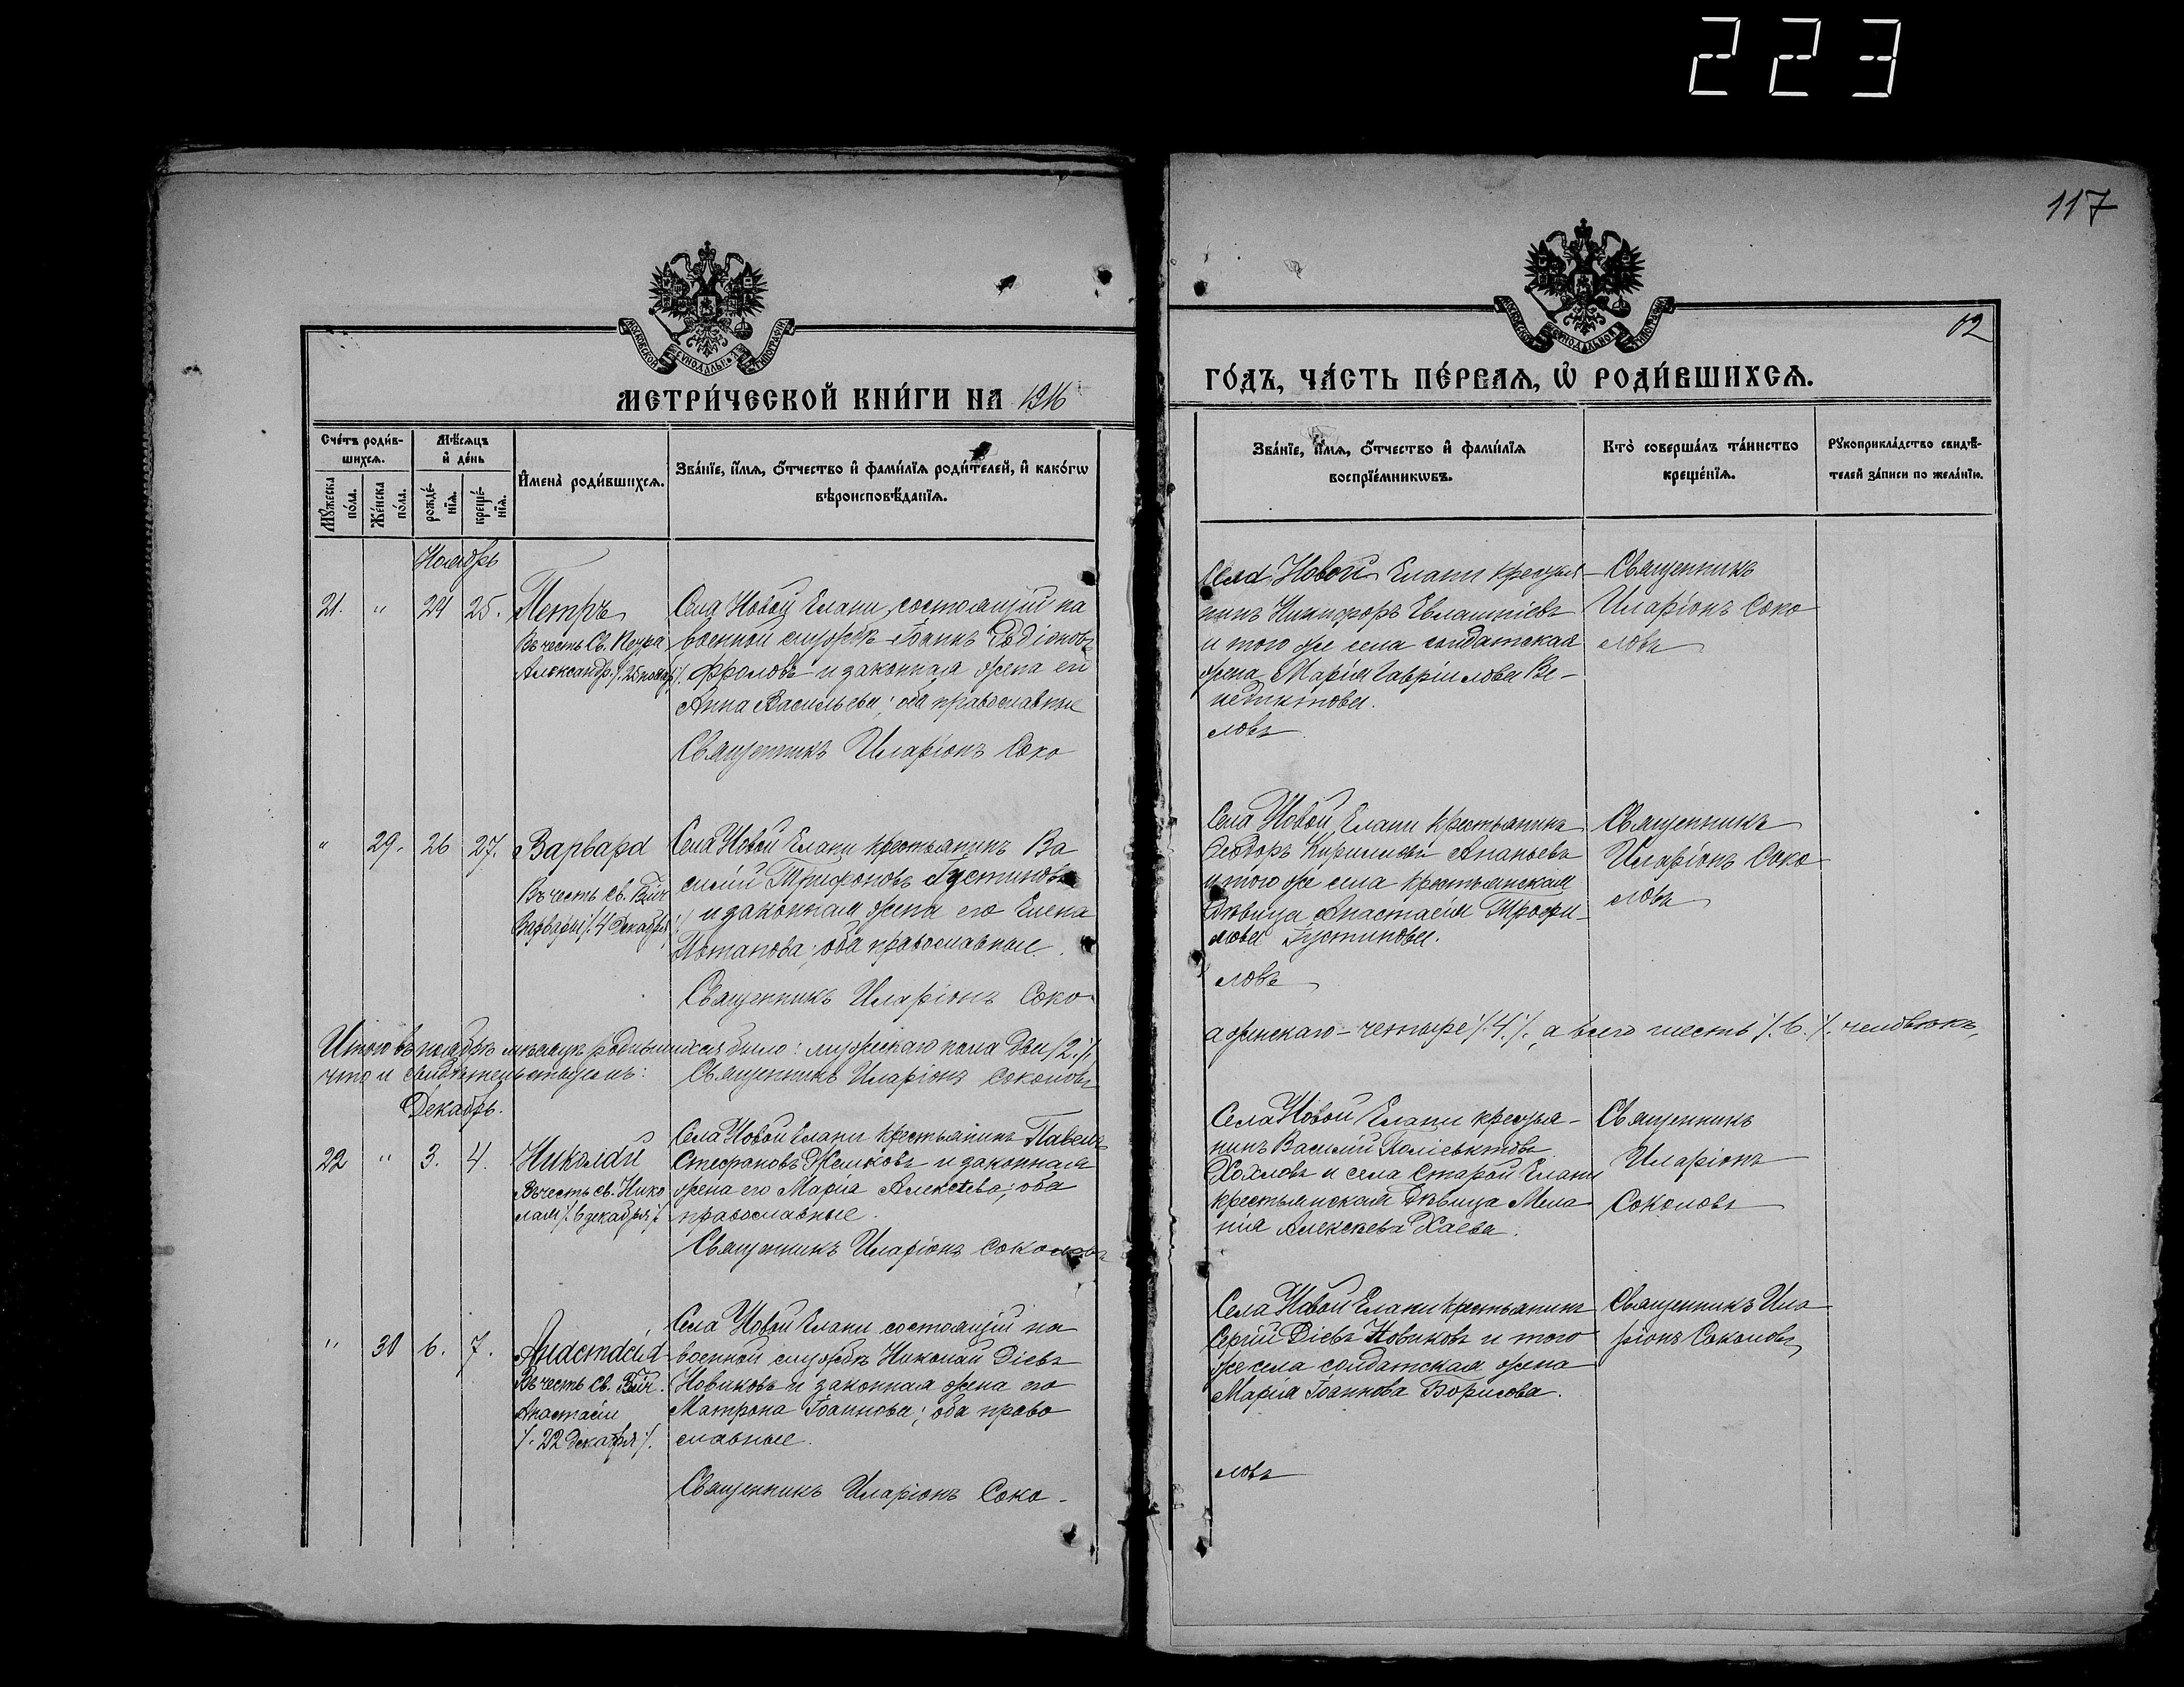 223
117
МОСКОВСКОЙ СѴНОДАЛЬНОЙ ТИПОГРАФІИ
МОСКОВСКОЙ СѴНОДАЛЬНОЙ ТИПОГРАФІИ
МЕТРИ́ЧЕСКОЙ КНИ́ГИ НА 1916
ГО́ДЪ, ЧА́СТЬ ПЕ́РВАѦ, Ѡ҆ РОДИ́ВШИХСѦ.
Сче́тъ роди́в-
шихсѧ.
Мꙋжеска
по́ла.
Же́нска
по́ла.
Мѣ́сѧцъ
и҆ де́нь
рожде́-
нїѧ.
креще́-
нїѧ.
И҆мена̀ роди́вшихсѧ.
Зва́нїе, и҆́мѧ, ѻ҆́тчество и҆ фами́лїѧ роди́телей, и҆ како́гѡ
вѣроисповѣ́данїѧ.
Зва́нїе, и҆́мѧ, ѻ҆́тчество и҆ фами́лїѧ
воспрїе́мникѡвъ.
Кто̀ соверша́лъ та́инство
креще́нїѧ.
Рꙋкоприкла́дство свидѣ́-
телей за́писи по жела́нїю.
Ноябрь
21. " 24 25. Петръ
Въ честь Св. Петра
Александр. /. 25 нояб. /.
Села Новой Елани, состоящій на
военной службѣ Іоаннъ Родіоновъ
Фроловъ и законная жена его
Анна Васильева; оба православные
Священникъ Иларіонъ Соко
Села Новой Елани крестья-
нинъ Никифоръ Евлампіевъ
и того же села солдатская
жена Марія Гавріилова Ве-
недиктова.
ловъ
Священникъ
Иларіонъ Соко
ловъ
" 29. 26 27. Варвара
Въ честь Св. Вмч
Варвары /. 4 Декабря /.
Села Новой Елани крестьянинъ Ва
силій Трифоновъ Густиновъ
и законная жена его Елена
Потапова; оба православные.
Священникъ Иларіонъ Соко-
Села Новой Елани крестьянинъ
Ѳеодоръ Кирилловъ Ананьевъ
и того же села крестьянская
дѣвица Анастасія Трофи-
мова Густинова.
ловъ
Священникъ
Иларіонъ Соко
ловъ
Итого въ ноябрѣ мѣсяцѣ родившихся было: мужескаго пола два /2./.
а женскаго - четыре /. 4 /., а всего шесть /. 6. /. человѣкъ,
что и свидѣтельствуемъ: Священникъ Иларіонъ Соколовъ
Декабрь.
22 " 3. 4. Николай
Въ честь св. Нико
лая /. 6 декабря /.
Села Новой Елани крестьянинъ Павелъ
Стефановъ и законная
жена его Марія Алексѣева; оба
православные.
Священникъ Иларіонъ Соколовъ
Села Новой Елани крестья-
нинъ Василій Поліевктовъ
Хохловъ и села Старой Елани
крестьянская дѣвица Мела
нія Алексѣева Хаева.
Священникъ
Иларіонъ
Соколовъ
" 30 6. 7. Анастасія
Въ честь Св. Вмч.
Анастасіи
/. 22 декабря /.
Села Новой Елани состоящій на
военной службѣ Николай Діевъ
Новиковъ и законная жена его
Матрона Іоаннова; оба право
славные.
Священникъ Иларіонъ Соко-
Села Новой Елани крестьянинъ
Сергій Діевъ Новиковъ и того
же села солдатская жена
Марія Іоаннова Борисова.
ловъ
Священникъ Ила
ріонъ Соколовъ